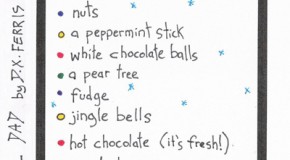 nuts
a peppermint stick
white chocolate balls
a pear tree
fudge
jingle bells
hot chocolate (it's fresh!)
DAD by D.X. FERRIS